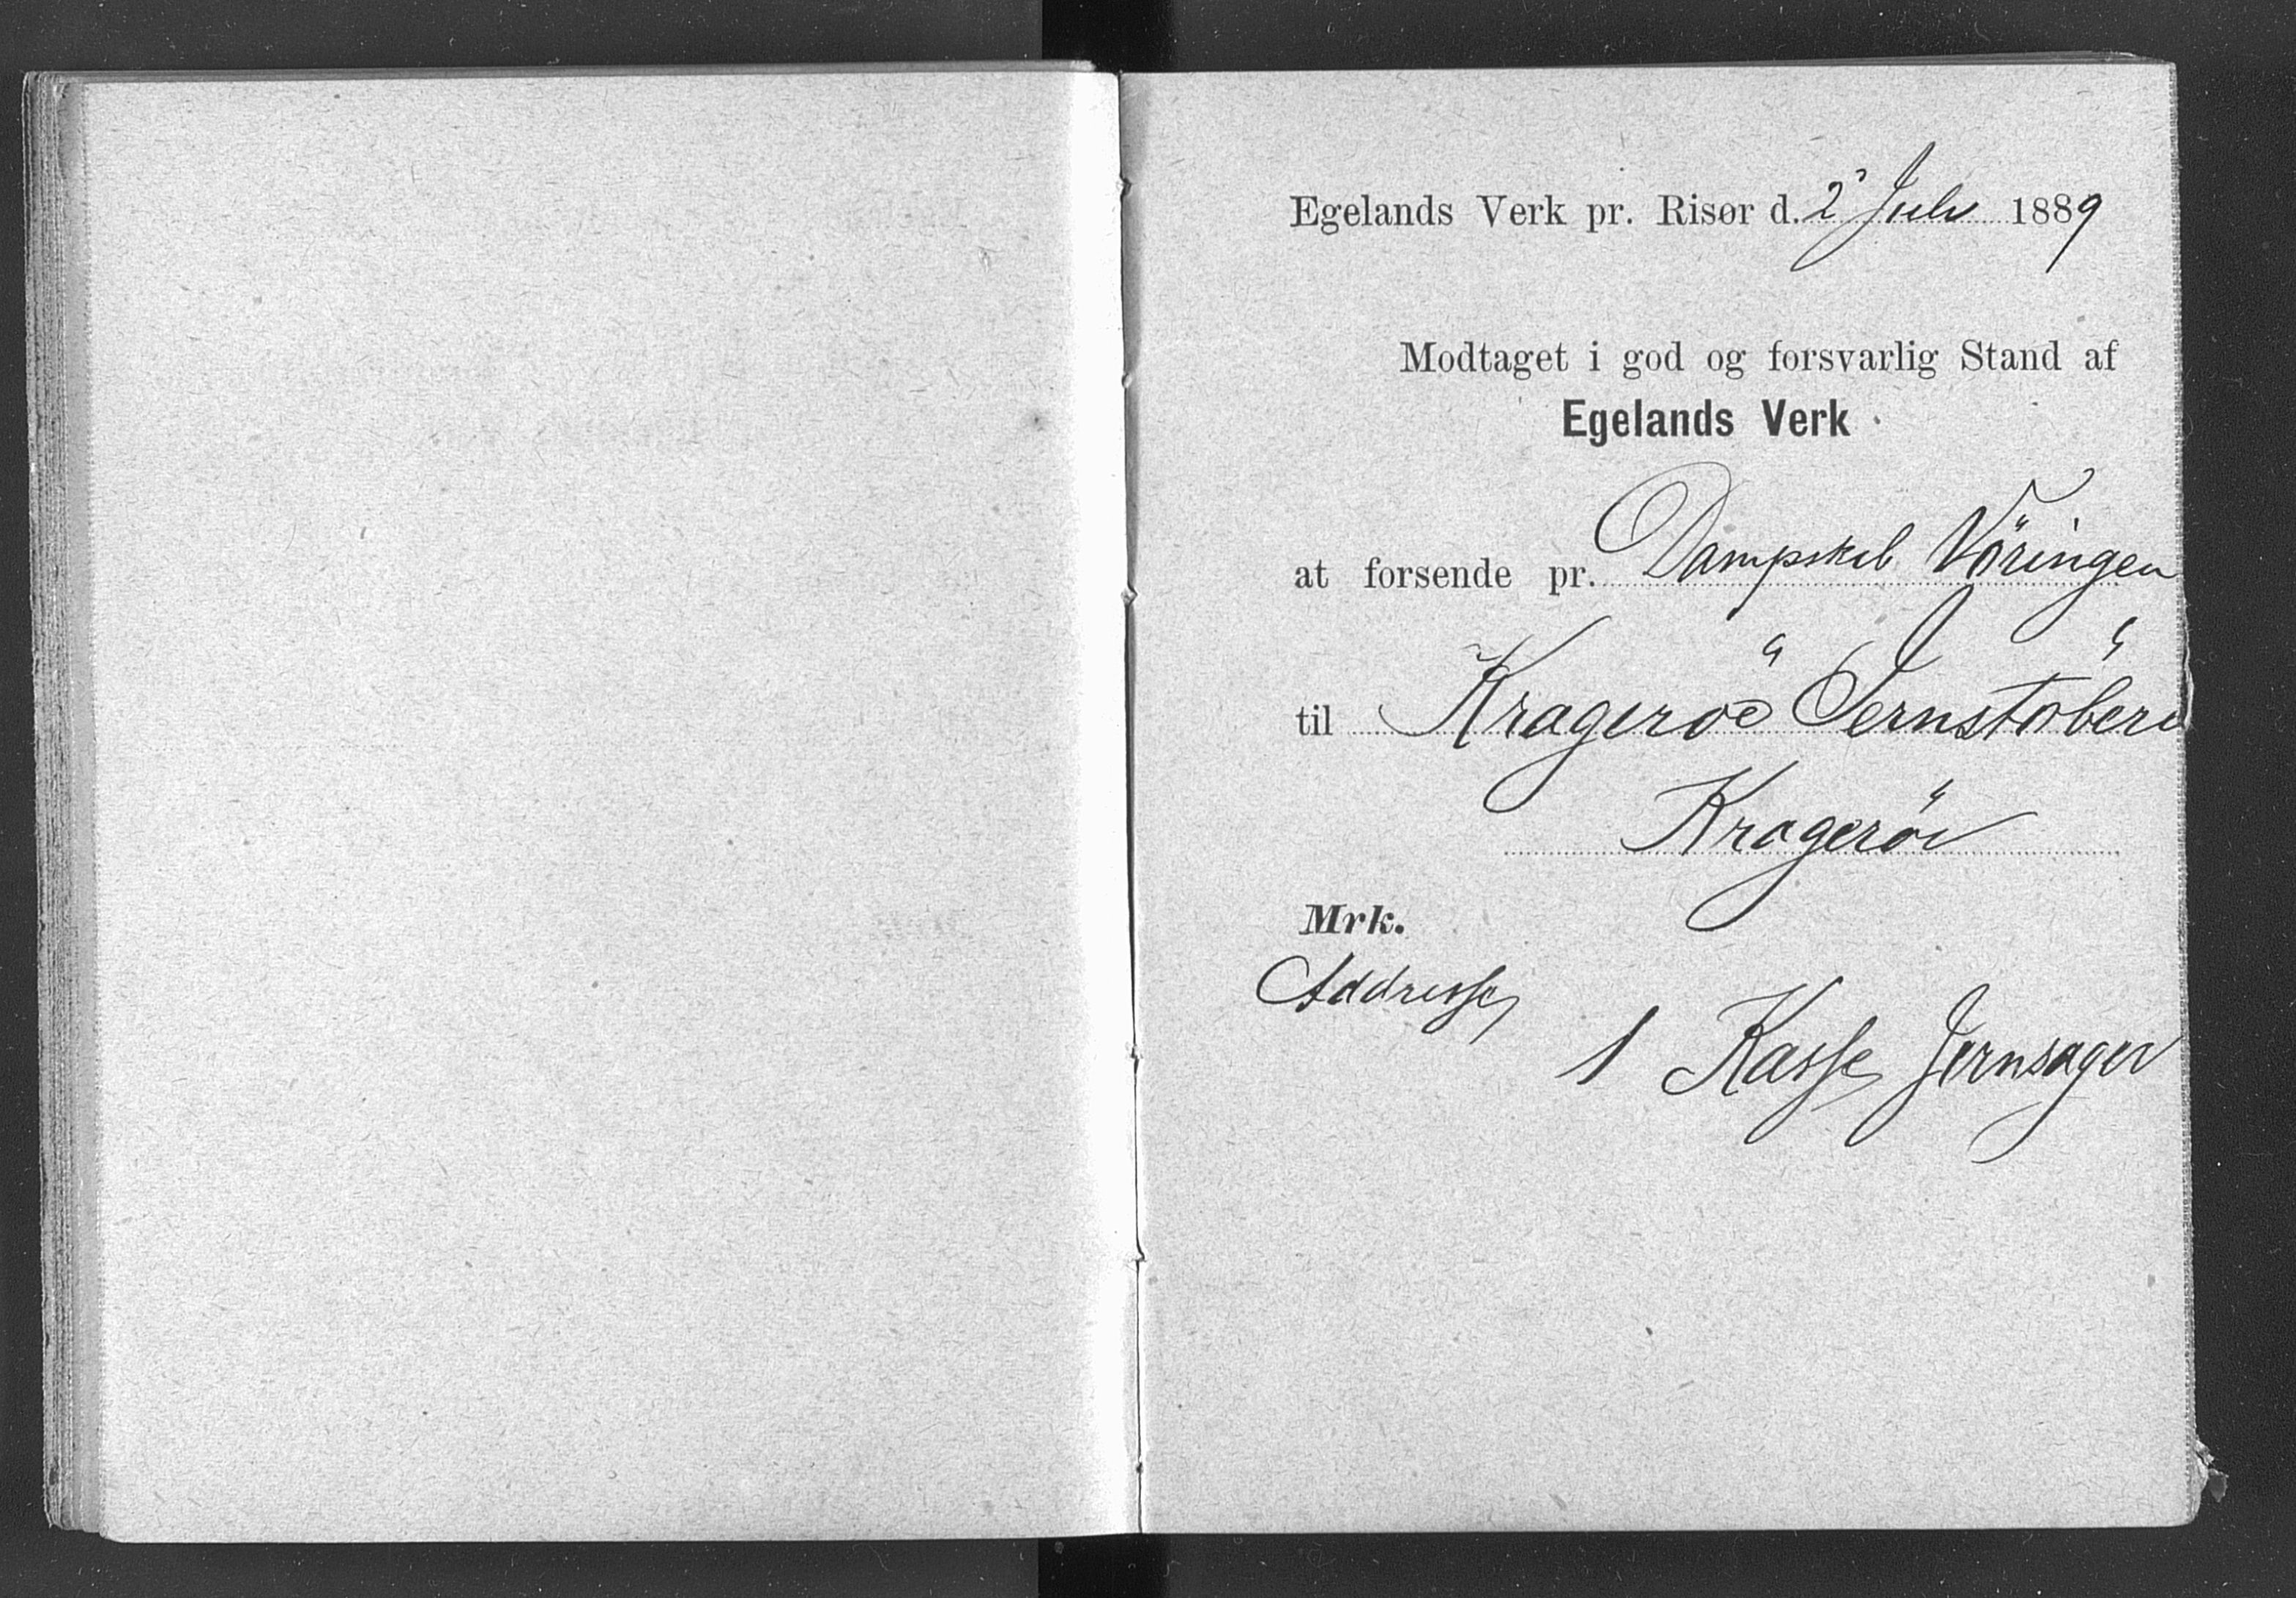 Egelands Verk pr. Risør d. 2 Juli 1889
Modtaget i god og forsvarlig Stand af
Egelands Verk
at forsende pr. Dampskib Vöringen
til Krageröe Jernstöberi
Krageröe
Mrk.
Addresse
1 Kasse Jernsager